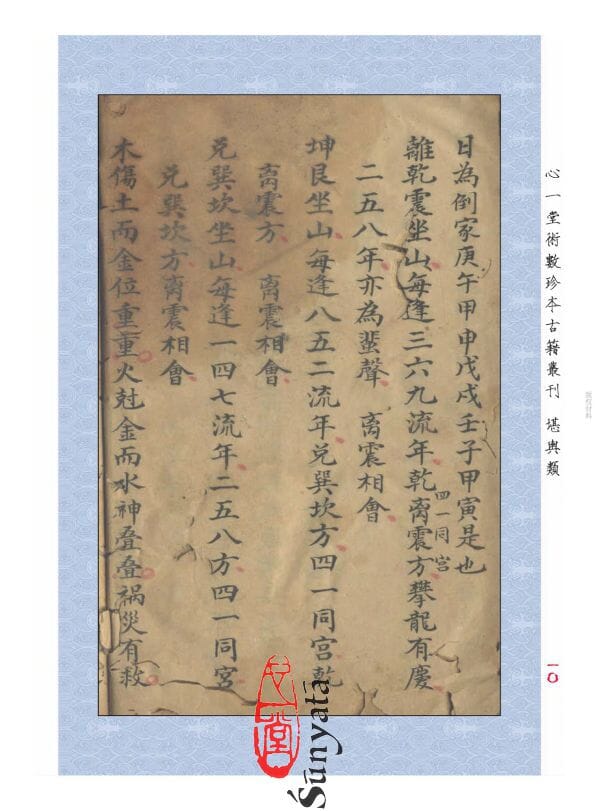 心一堂術數珍本古籍叢刊 堪輿類
一〇
日為倒家庚午甲申戊戌壬子甲寅是也
四一同宮
離乾震坐山每逢三六九流年乾离震方攀龍有慶
二五八年亦為蜚聲 离震相會
坤艮坐山每逢八五二流年兌巽坎方四一同宮乾
离震方 离震相會
兌巽坎坐山每逢一四七流年二五八方四一同宮
兌巽坎方离震相會
木傷土而金位重重火尅金而水神叠叠祸災有救
心一堂
Śūnyatā
版权材料